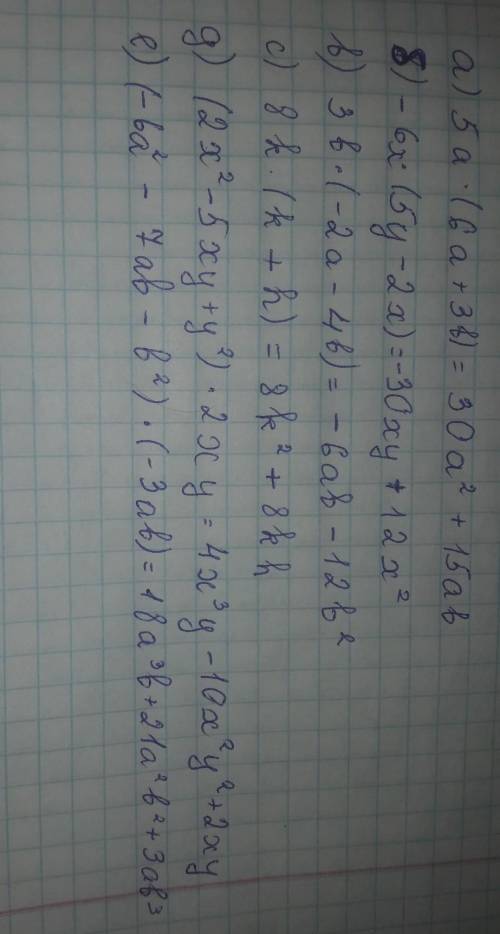 а) 5a·(6a+3b)=30a²+15ab
б) -6x·(5y-2x)=-30xy+12x²
в) 3b·(-2a-4b)=-6ab-12b²
с) 8k·(k+h)=8k²+8kh
д) (2x²-5xy+y²)·2xy=4x³y-10x²y²+2xy
е) (-6a²-7ab-b²)·(-3ab)=18a³b+21a²b²+3ab³